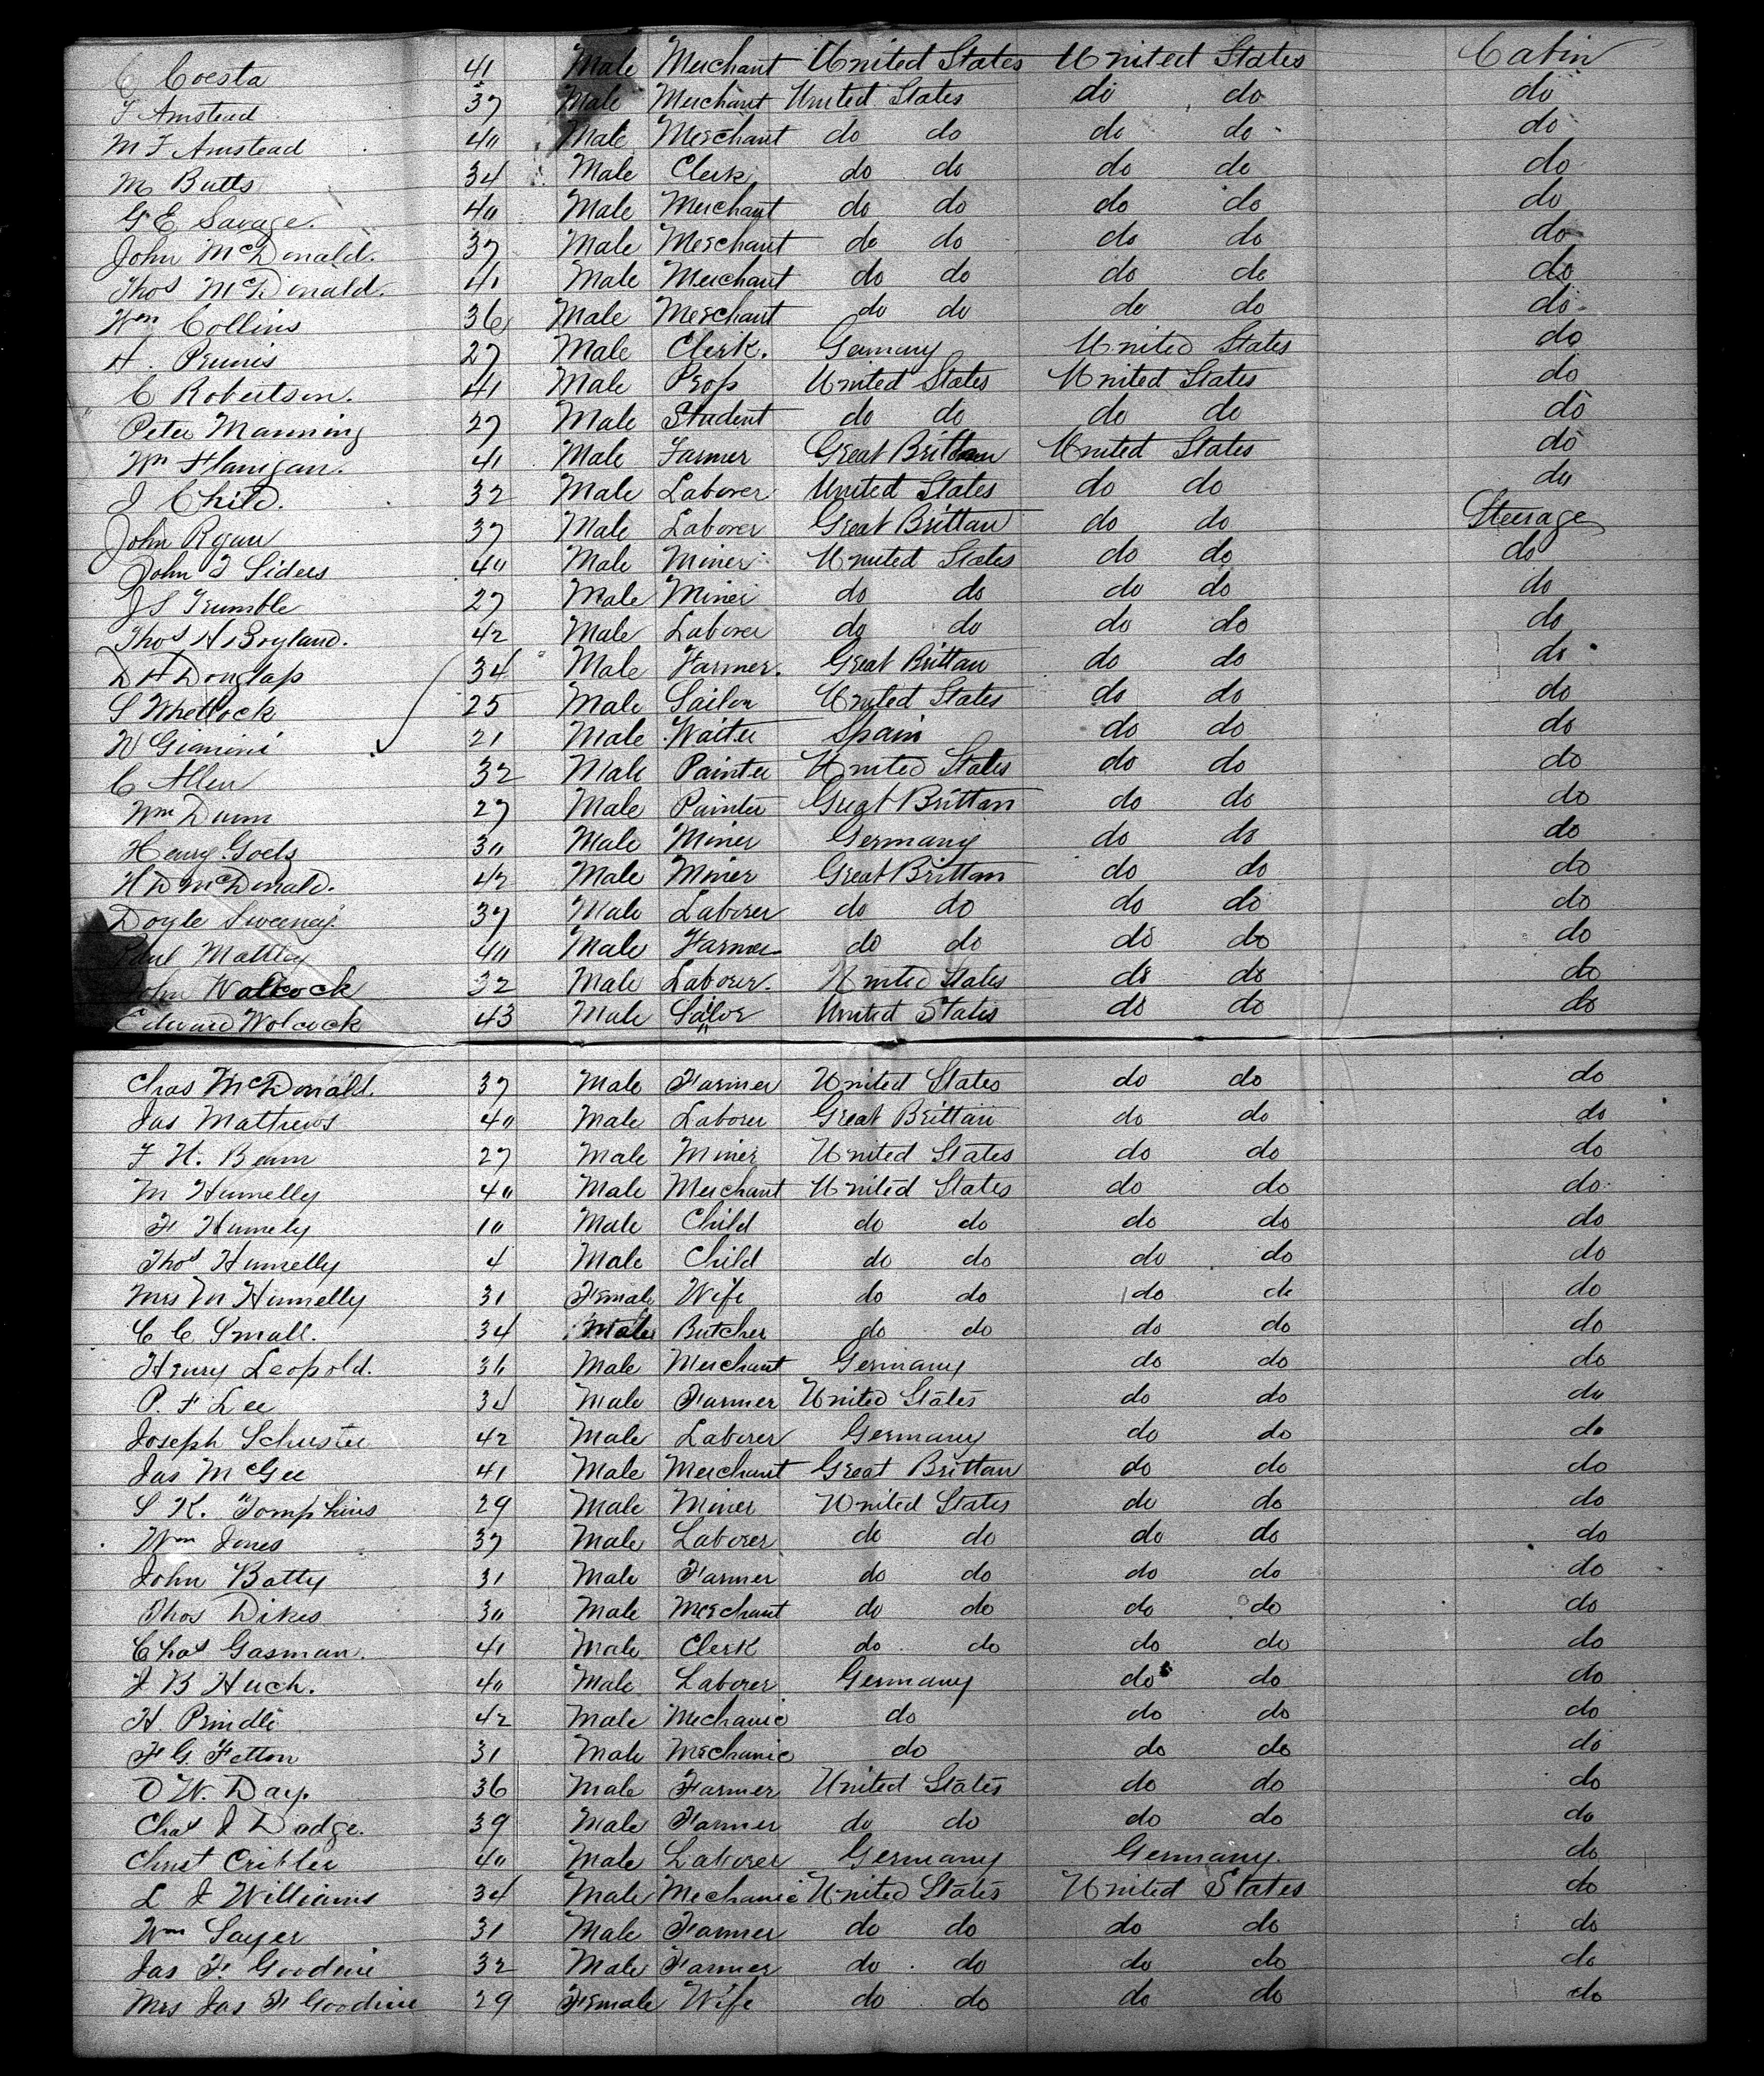 C Coesta 41 Male Merchant United States United States Cabin
T Amstead 37 Male Merchant United States do do do
M T Amstead 40 Male Merchant do do do do do
M Butts 34 Male Clerk do do do do do
G E Savage. 40 Male Merchant do do do do do
John McDonald. 37 Male Merchant do do do do do
Thos McDonald. 41 Male Merchant do do do do do
Wm Collins 36 Male Merchant do do do do do
H. Prunis 27 Male Clerk. Germany United States do
C Robertson. 41 Male Prop United States United States do
Peter Manning 27 Male Student do do do do do
Wm Flanigan. 41 Male Farmer Great Brittan United States do
J Child. 32 Male Laborer United States do do do
John Ryan 37 Male Laborer Great Brittan do do Steerage
John T Siders 40 Male Miner United States do do do
J S Trumble 27 Male Miner do do do do do
Thos H Boyland. 42 Male Laborer do do do do do
D H Douglap 34 Male Farmer. Great Brittan do do do
S Whellock 25 Male Sailor United States do do do
W Gimini 21 Male Waiter Spain do do do
C Allen 32 Male Painter United States do do do
Wm Dunn 27 Male Painter Great Brittan do do do
Henry Goelz 30 Male Miner Germany do do do
H D McDonald. 42 Male Miner Great Brittan do do do
Doyle Sweeney. 37 Male Laborer do do do do do
Paul Mattley 40 Male Farmer do do do do do
John Walcock 32 Male Laborer. United States do do do
Edward Wolcock 43 Male Sailor United States do do do
Chas McDonald. 37 Male Farmer United States do do do
Jas Mathews 40 Male Laborer Great Brittan do do do
F H. Beam 27 Male Miner United States do do do
M Humelly 40 Male Merchant United States do do do
F Humely 10 Male Child do do do do do
Thos Humelly 4 Male Child do do do do do
Mrs M Humelly 31 Female Wife do do do do do
C C Small. 34 Male Butcher do do do do do
Henry Leopold. 36 Male Merchant Germany do do do
P. F Lee 34 Male Farmer United States do do do
Joseph Schuster 42 Male Laborer Germany do do do
Jas McGee 41 Male Merchant Great Brittan do do do
S K. Tompkins 29 Male Miner United States do do do
Wm Jones 37 Male Laborer do do do do do
John Batty 31 Male Farmer do do do do do
Thos Dikes 30 Male Merchant do do do do do
Chas Gasman. 41 Male Clerk do do do do do
J B Huch. 40 Male Laborer Germany do do do
H. Prindle 42 Male Mechanic do do do do
F G Fetton 31 Male Mechanic do do do do
O W. Day. 36 Male Farmer United States do do do
Chas J Dodge. 39 Male Farmer do do do do do
Christ Cribler 40 Male Laborer Germany Germany. do
L J Williams 34 Male Mechanic United States United States do
Wm Sayer 31 Male Farmer do do do do do
Jas F. Goodine 32 Male Farmer do do do do do
Mrs Jas F Goodine 29 Female Wife do do do do do